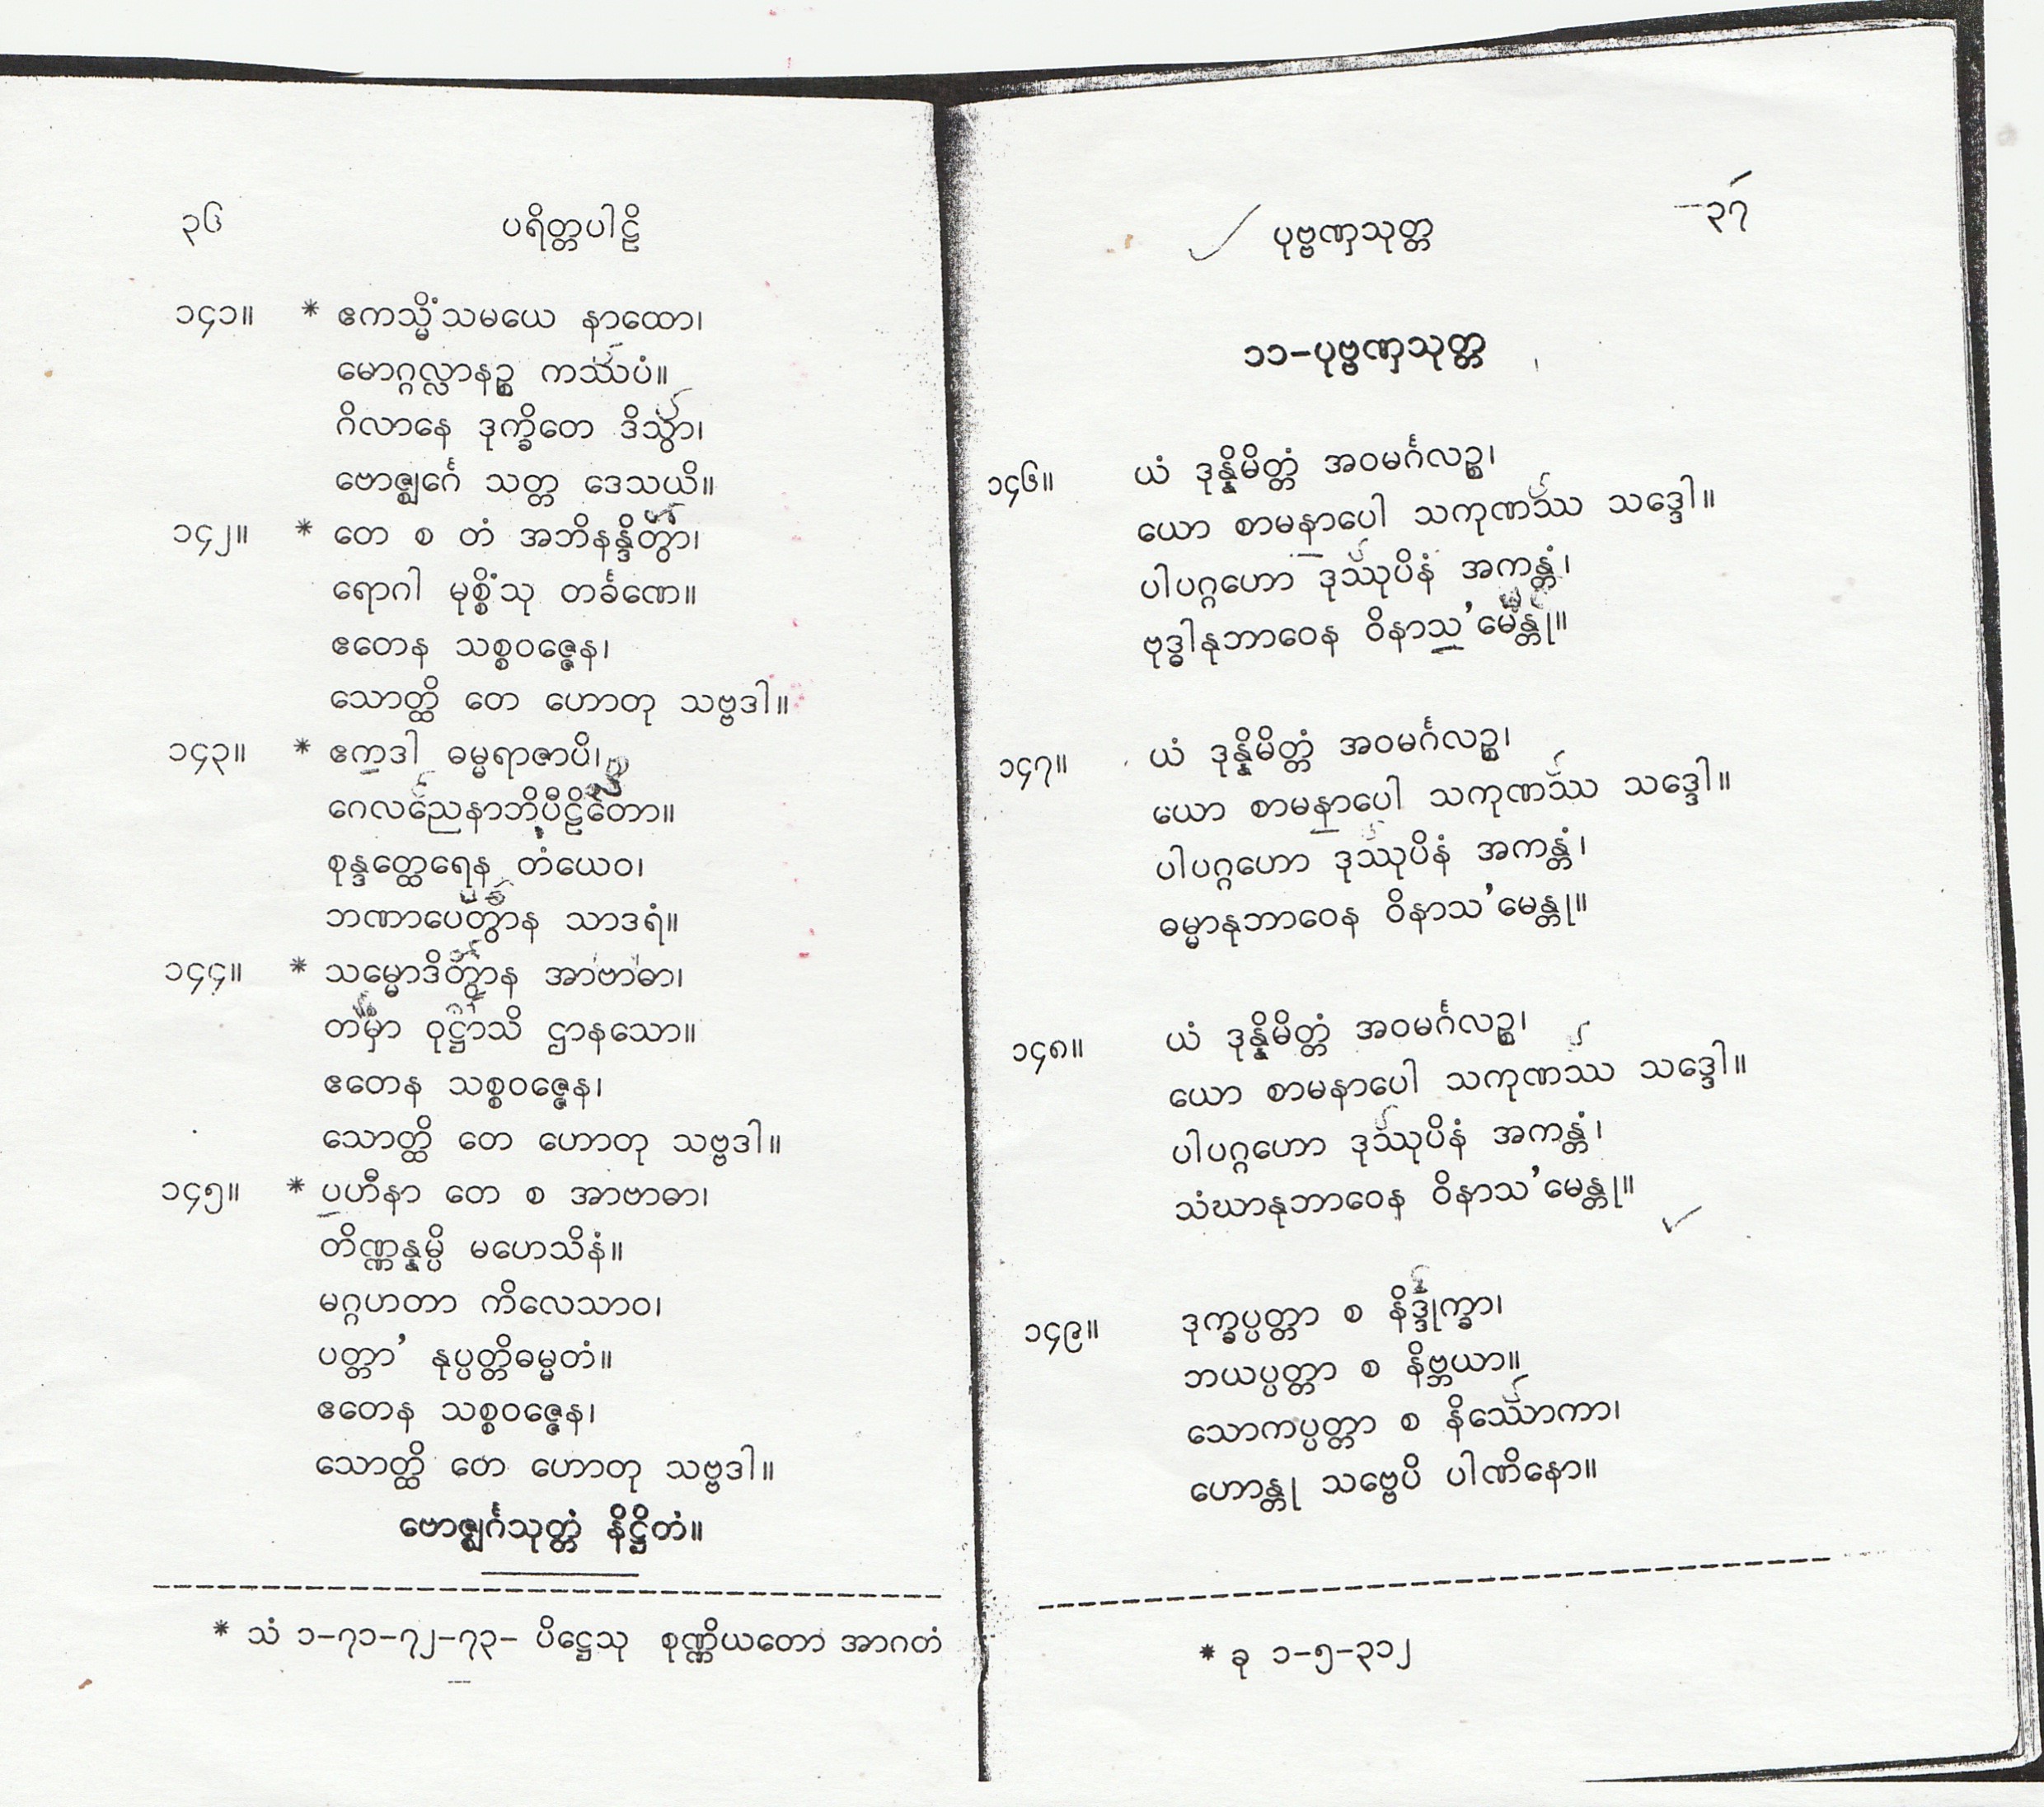 ၃၆ ပရိတ္တပါဠိ
၁၄၁။ * ဧကသ္မိံသမယေ နာထော၊
မောဂ္ဂလ္လာနဉ္စ ကဿပံ။
ဂိလာနေ ဒုက္ခိတေ ဒိသွာ၊
ဗောဇ္ဈင်္ဂေ သတ္တ ဒေသယိ။
၁၄၂။ * တေ စ တံ အဘိနန္ဒိတွာ၊
ရောဂါ မုစ္စိံသု တင်္ခဏေ။
ဧတေန သစ္စဝဇ္ဇေန၊
သောတ္ထိ တေ ဟောတု သဗ္ဗဒါ။
၁၄၃။ * ဧကဒါ ဓမ္မရာဇာပိ၊
ဂေလညေနာဘိပီဠိတော။
စုန္ဒတ္ထေရေန တံယေဝ၊
ဘဏာပေတွာန သာဒရံ။
၁၄၄။ * သမ္မောဒိတွာန အာဗာဓာ၊
တမှာ ဝုဋ္ဌာသိ ဌာနသော။
ဧတေန သစ္စဝဇ္ဇေန၊
သောတ္ထိ တေ ဟောတု သဗ္ဗဒါ။
၁၄၅။ * ပဟီနာ တေ စ အာဗာဓာ၊
တိဏ္ဏန္နမ္ပိ မဟေသိနံ။
မဂ္ဂဟတာ ကိလေသာဝ၊
ပတ္တာ’ နုပ္ပတ္တိဓမ္မတံ။
ဧတေန သစ္စဝဇ္ဇေန၊
သောတ္ထိ တေ ဟောတု သဗ္ဗဒါ။
ဗောဇ္ဈင်္ဂသုတ္တံ နိဋ္ဌိတံ။
* သံ ၁-၇၁-၇၂-၇၃- ပိဋ္ဌေသု စုဏ္ဏိယတော အာဂတံ
ပုဗ္ဗဏှသုတ္တ ၃၇
၁၁-ပုဗ္ဗဏှသုတ္တ
၁၄၆။ ယံ ဒုန္နိမိတ္တံ အဝမင်္ဂလဉ္စ၊
ယော စာမနာပေါ သကုဏဿ သဒ္ဒေါ။
ပါပဂ္ဂဟော ဒုဿုပိနံ အကန္တံ၊
ဗုဒ္ဓါနုဘာဝေန ဝိနာသ’မေန္တု။
၁၄၇။ ယံ ဒုန္နိမိတ္တံ အဝမင်္ဂလဉ္စ၊
ယော စာမနာပေါ သကုဏဿ သဒ္ဒေါ။
ပါပဂ္ဂဟော ဒုဿုပိနံ အကန္တံ၊
ဓမ္မာနုဘာဝေန ဝိနာသ’မေန္တု။
၁၄၈။ ယံ ဒုန္နိမိတ္တံ အဝမင်္ဂလဉ္စ၊
ယော စာမနာပေါ သကုဏဿ သဒ္ဒေါ။
ပါပဂ္ဂဟော ဒုဿုပိနံ အကန္တံ၊
သံဃာနုဘာဝေန ဝိနာသ’မေန္တု။
၁၄၉။ ဒုက္ခပ္ပတ္တာ စ နိဒ္ဒုက္ခာ၊
ဘယပ္ပတ္တာ စ နိဗ္ဘယာ။
သောကပ္ပတ္တာ စ နိဿောကာ၊
ဟောန္တု သဗ္ဗေပိ ပါဏိနော။
* ခု ၁-၅-၃၁၂